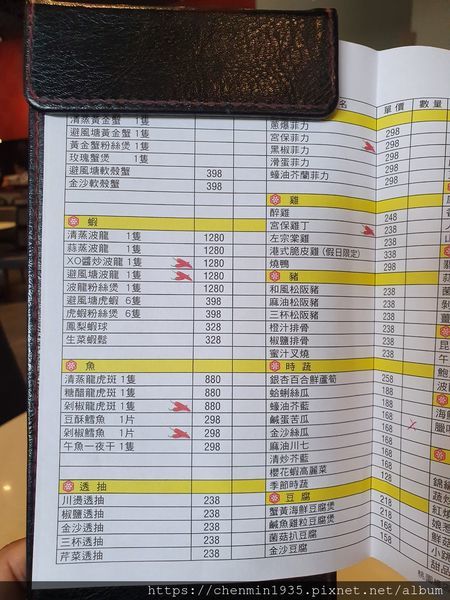 名 單價 數量
清蒸黃金蟹 1隻
避風塘黃金蟹 1隻
黃金蟹粉絲煲 1隻
玫瑰蟹煲 1隻
避風塘軟殼蟹 398
金沙軟殼蟹 398
蝦
清蒸波龍 1隻 1280
蒜蒸波龍 1隻 1280
XO醬炒波龍 1隻 1280
避風塘波龍 1隻 1280
波龍粉絲煲 1隻 1280
避風塘虎蝦 6隻 398
虎蝦粉絲煲 6隻 398
鳳梨蝦球 328
生菜蝦鬆 328
魚
清蒸龍虎斑 1隻 880
糖醋龍虎斑 1隻 880
剁椒龍虎斑 1隻 880
豆酥鱈魚 1片 298
剁椒鱈魚 1片 298
午魚一夜干 1隻 298
透抽
川燙透抽 238
椒鹽透抽 238
金沙透抽 238
三杯透抽 238
芹菜透抽 238
蔥爆菲力 298
宮保菲力 298
黑椒菲力 298
滑蛋菲力 298
蠔油芥蘭菲力 298
雞
醉雞 248
宮保雞丁 238
左宗棠雞 238
港式脆皮雞 (假日限定) 338
燒鴨 338
豬
和風松阪豬 238
麻油松阪豬 238
三杯松阪豬 238
橙汁排骨 238
椒鹽排骨 238
蜜汁叉燒 238
時蔬
銀杏百合鮮蘆筍 258
蛤蜊絲瓜 188
蠔油芥藍 168
鹹蛋苦瓜 188
金沙絲瓜 188
麻油川七 168
清炒芥藍 168
櫻花蝦高麗菜 168
季節時蔬 168
豆腐
蟹黃海鮮豆腐煲 218
鹹魚雞粒豆腐煲 218
菌菇扒豆腐 168
金沙豆腐 158
https://chenmin1935.pixnet.net/album